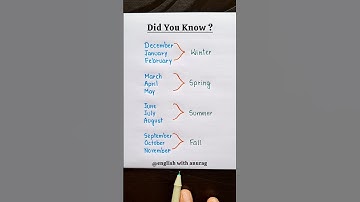 Did You Know ?
December
January
February
Winter
March
April
May
Spring
June
July
August
Summer
September
October
November
Fall
@english with anurag